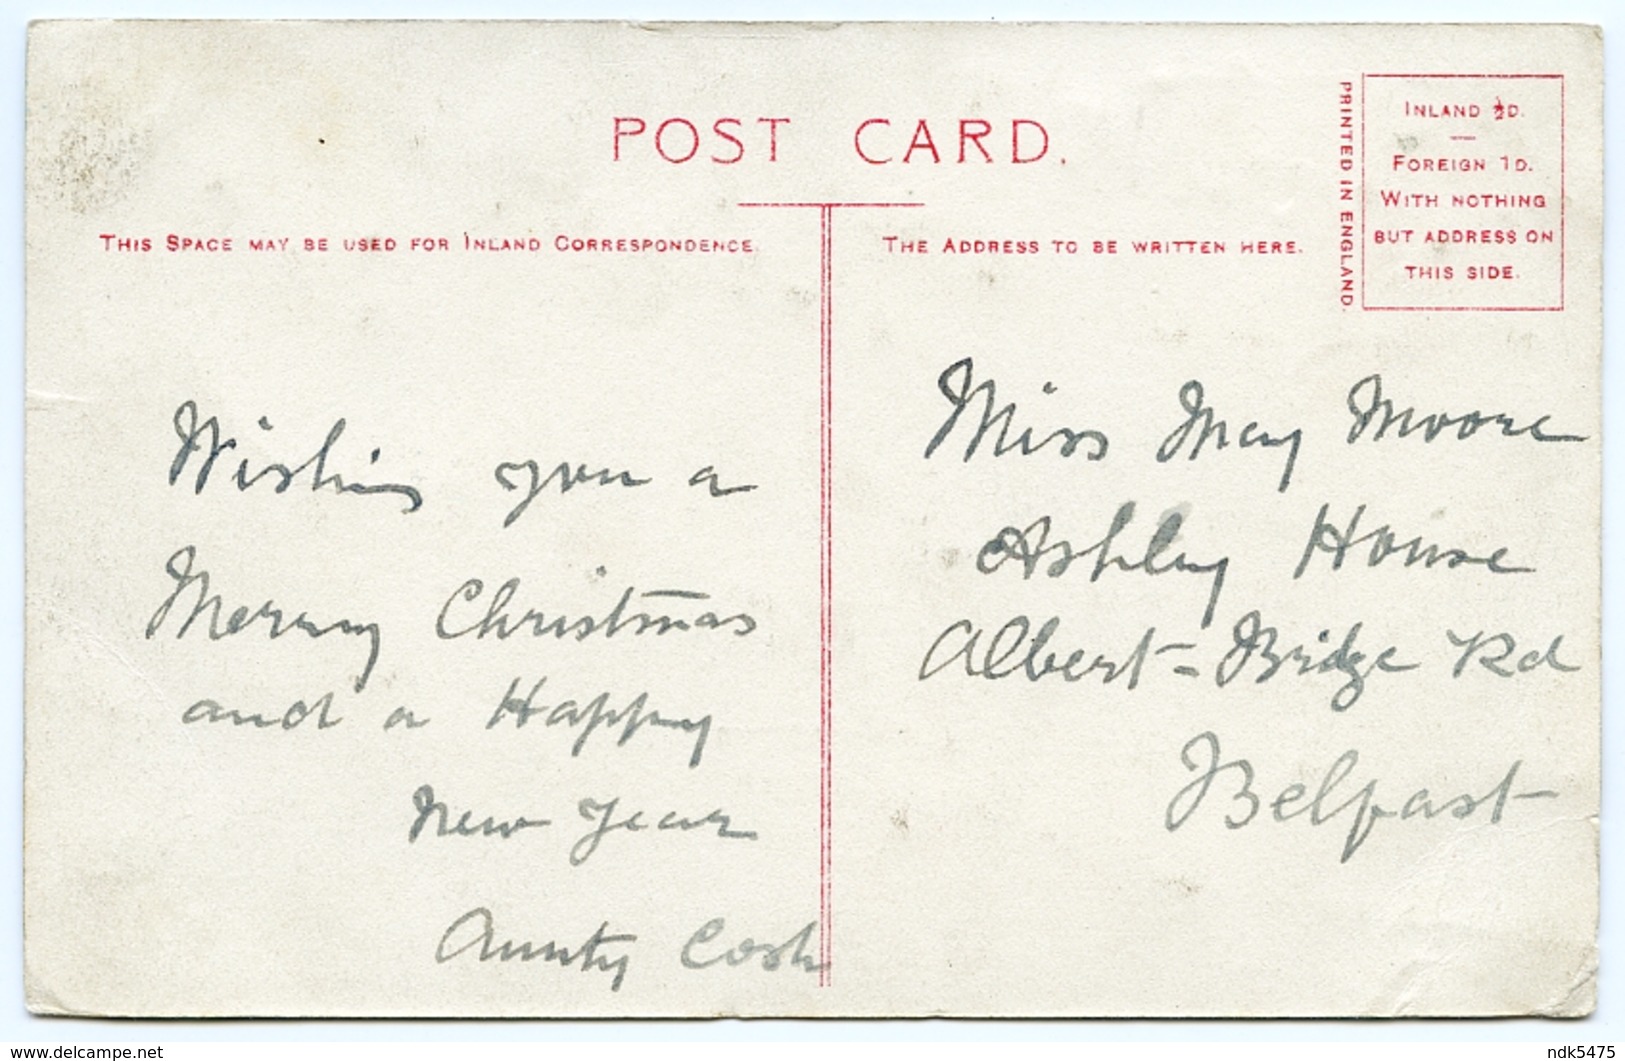 POST CARD.
THIS SPACE MAY BE USED FOR INLAND CORRESPONDENCE.
THE ADDRESS TO BE WRITTEN HERE.
PRINTED IN ENGLAND.
INLAND ½D.
FOREIGN 1D.
WITH NOTHING
BUT ADDRESS ON
THIS SIDE.
Wishing you a
Merry Christmas
and a Happy
New Year
Aunty Cosh
Miss May Moore
Ashley House
Albert-Bridge Rd
Belfast
www.delcampe.net
ndk5475